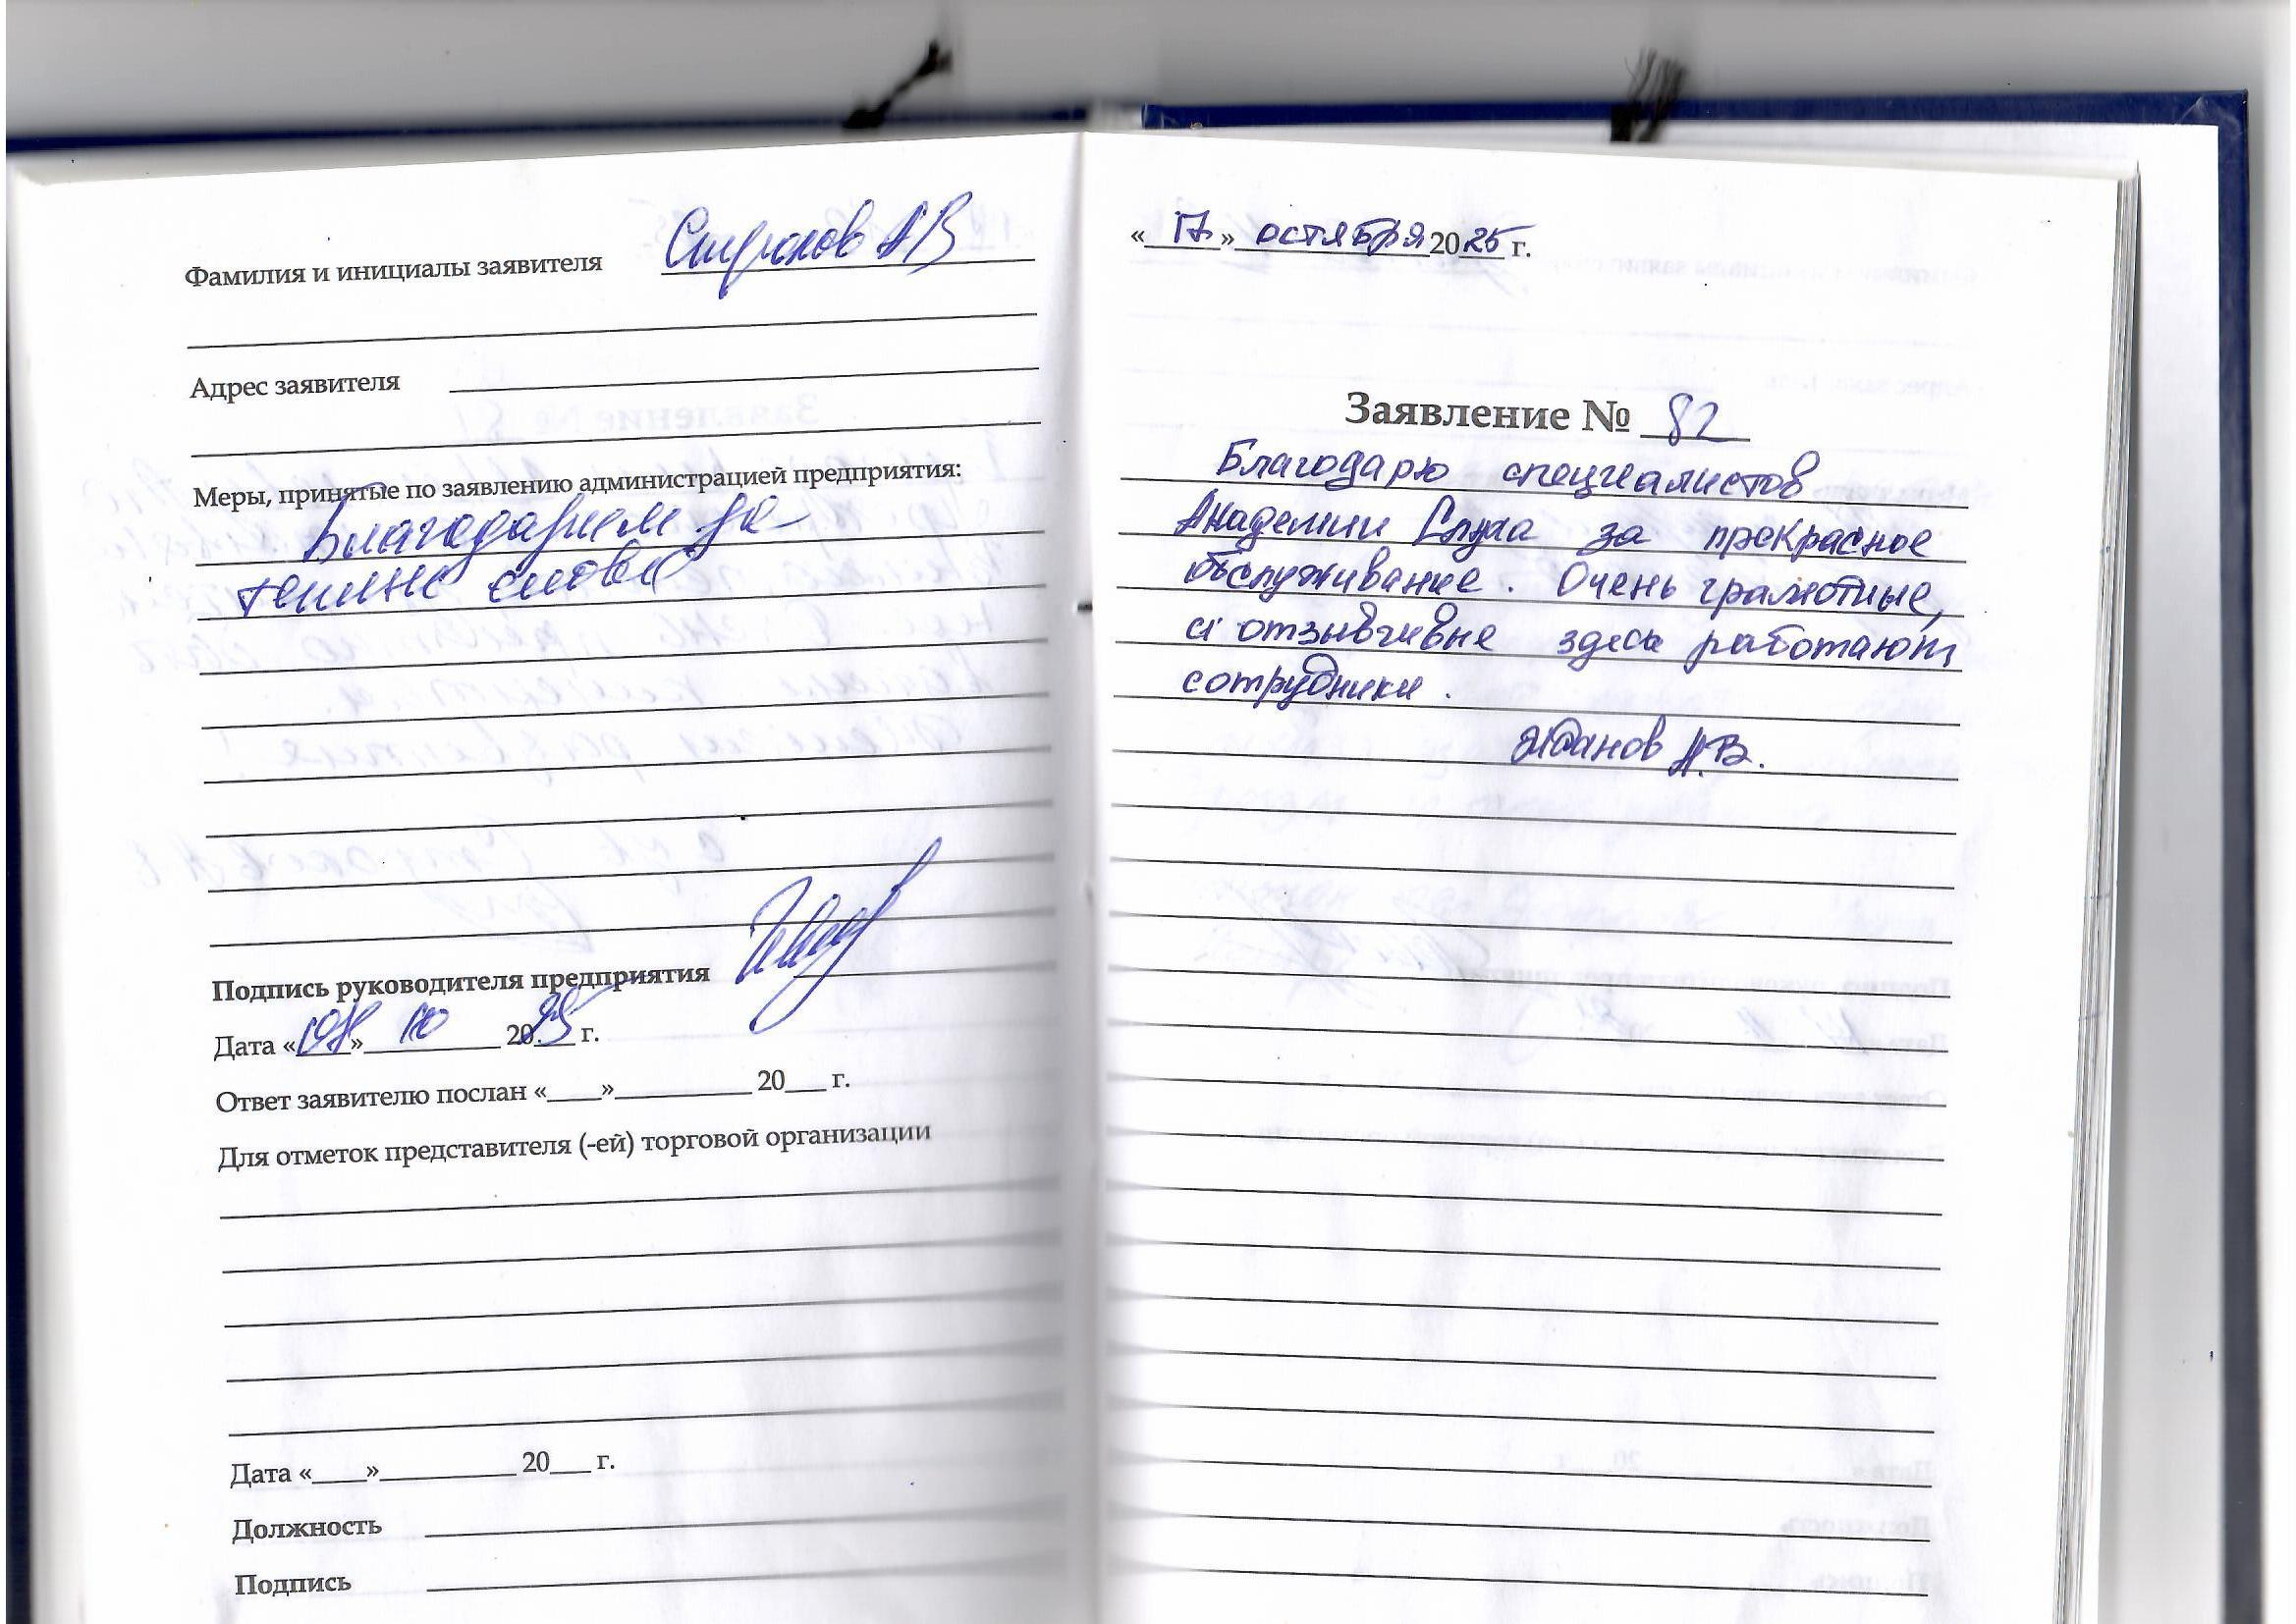 Фамилия и инициалы заявителя АВ
Адрес заявителя
Меры, принятые по заявлению администрацией предприятия:
Благодарим за
теплые слова
Подпись руководителя предприятия
Дата «08» 10 2025 г.
Ответ заявителю послан «____»__________ 20___ г.
Для отметок представителя (-ей) торговой организации
Дата «____»__________ 20___ г.
Должность
Подпись
«17» октября 2025 г.
Заявление № 82
Благодарю специалистов
Академии Слуха за прекрасное
обслуживание. Очень грамотные,
и отзывчивые здесь работают
сотрудники.
Жданов А.В.